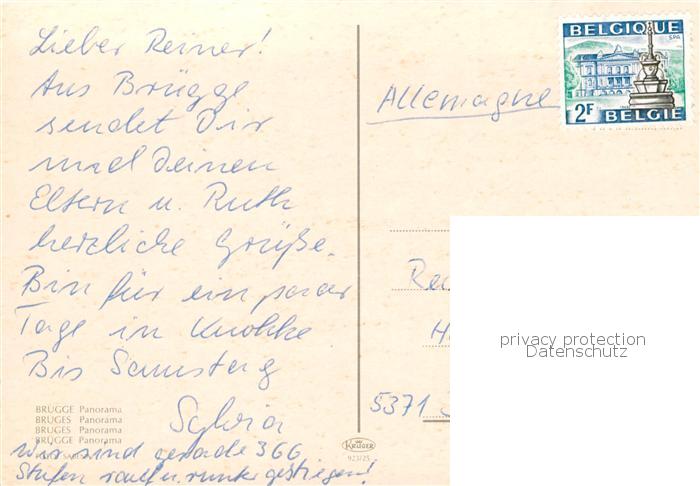 Lieber Reiner!
Aus Brügge
sendet Dir
und Deinen
Eltern u. Ruth
herzliche Grüße.
Bin für ein paar
Tage in Knokke
Bis Samstag
Sylvia
Wir sind gerade 366
Stufen rauf u. runter gestiegen!
BRÜGGE Panorama
BRUGES Panorama
BRUGES Panorama
BRÜGGE Panorama
KRÜGER
923/25
BELGIQUE
SPA
2F
BELGIE
Allemagne
Re
H
5371
privacy protection
Datenschutz